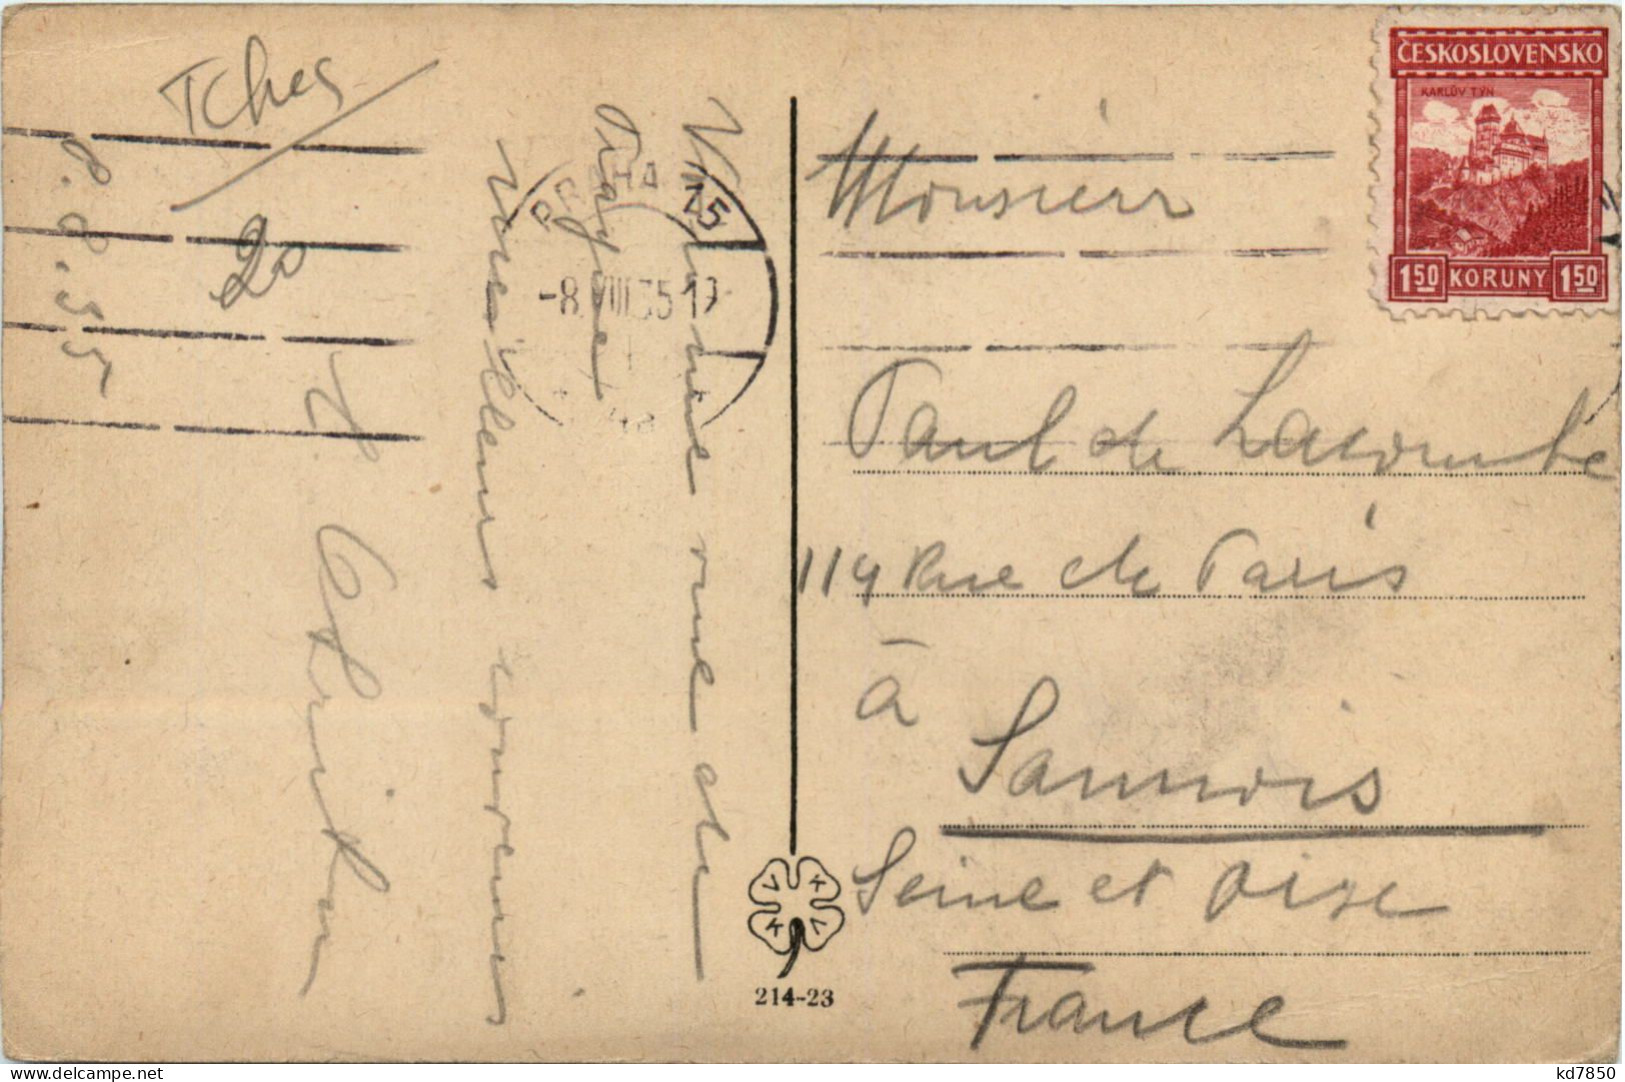 Tches
20
8.8.35
PRAHA 25
-8.VIII 35 17
Voici une vue de
Prague
Meilleurs souvenirs
ČESKOSLOVENSKO
KARLŮV TÝN
1 50 KORUNY 1 50
Monsieur
Paul de Lacombe
114 Rue de Paris
à
Sannois
Seine et Oise
France
V K
K V
214-23
kd7850